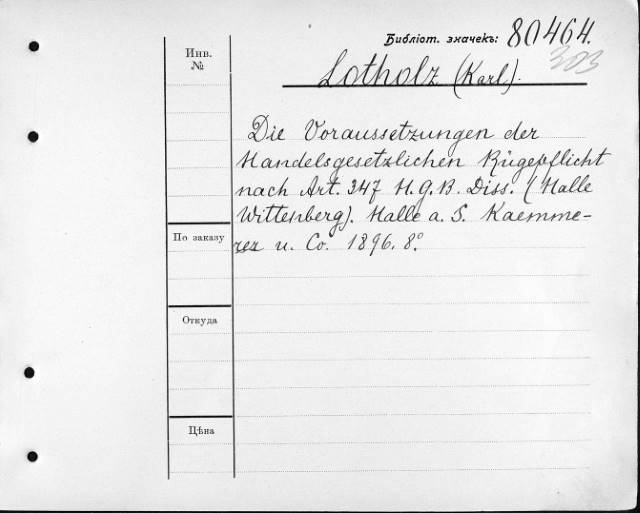 Библіот. значекъ: 80464.
303
Инв.
№
Lotholz (Karl).
Die Voraussetzungen der
Handelsgesetzlichen Rügepflicht
nach Art. 347 H.G.B. Diss. (Halle
Wittenberg). Halle a. S. Kaemme-
rer u. Co. 1896. 8°.
По заказу
Откуда
Цѣна